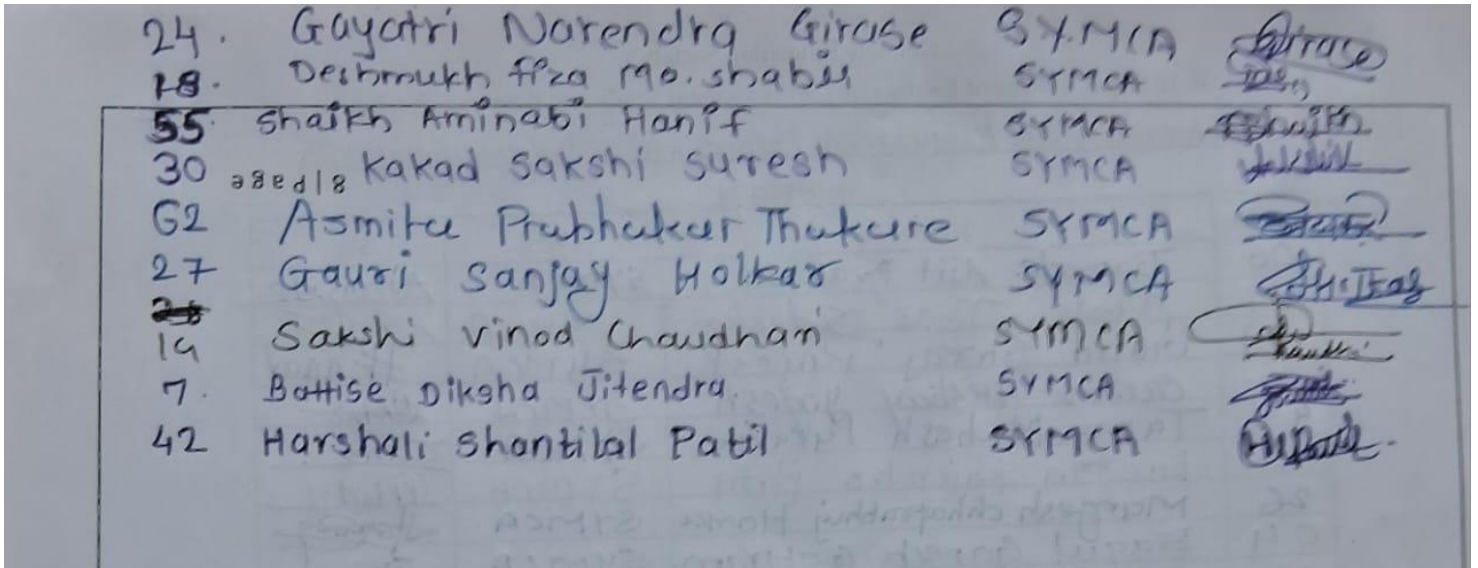 24. Gayatri Narendra Girase SYMCA Girase
18. Deshmukh fiza mo. shabir SYMCA
55 Shaikh Aminabi Hanif SYMCA Shaikh
30 Kakad Sakshi Suresh SYMCA Sakshi
8|page
62 Asmita Prabhakar Thakare SYMCA
27 Gauri Sanjay Holkar SYMCA
19 Sakshi Vinod Chaudhari SYMCA
7. Battise Diksha Jitendra. SYMCA
42 Harshali Shantilal Patil SYMCA